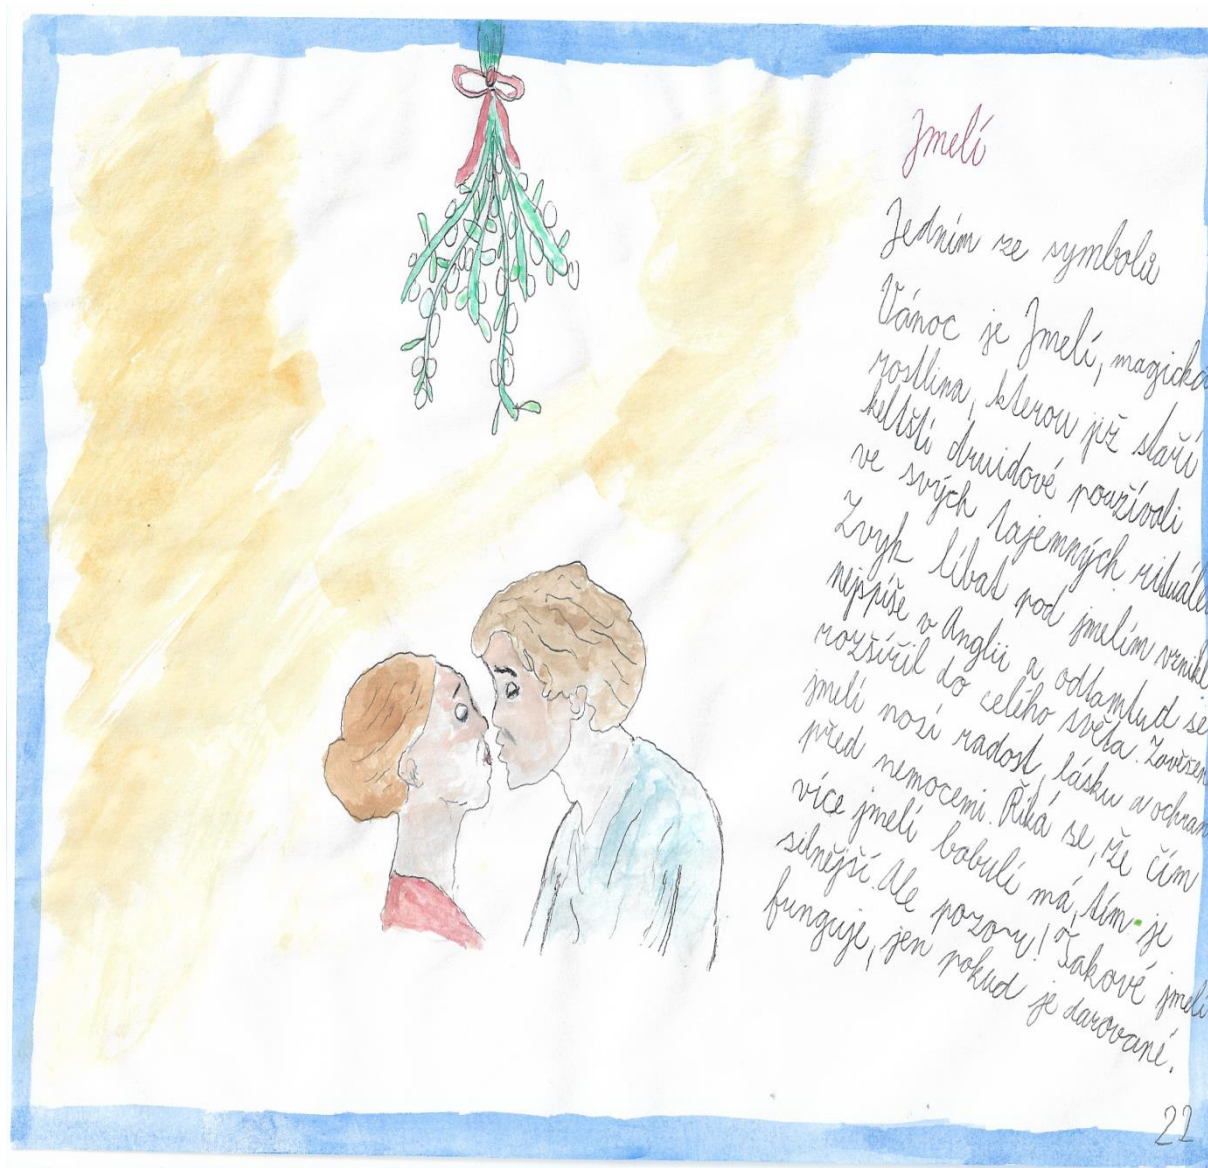 Jmelí
Jedním ze symbolů
Vánoc je Jmelí, magická
rostlina, kterou již staří
keltští druidové používali
ve svých tajemných rituále
Zvyk líbat pod jmelím vznikl
nejspíše v Anglii a odtamtud se
rozšířil do celého světa. Zavěšen
jmelí nosí radost, lásku a ochran
před nemocemi. Říká se, že čím
více jmelí bobulí má, tím je
silnější. Ale pozor! Takové jmelí
funguje, jen pokud je darované.
22